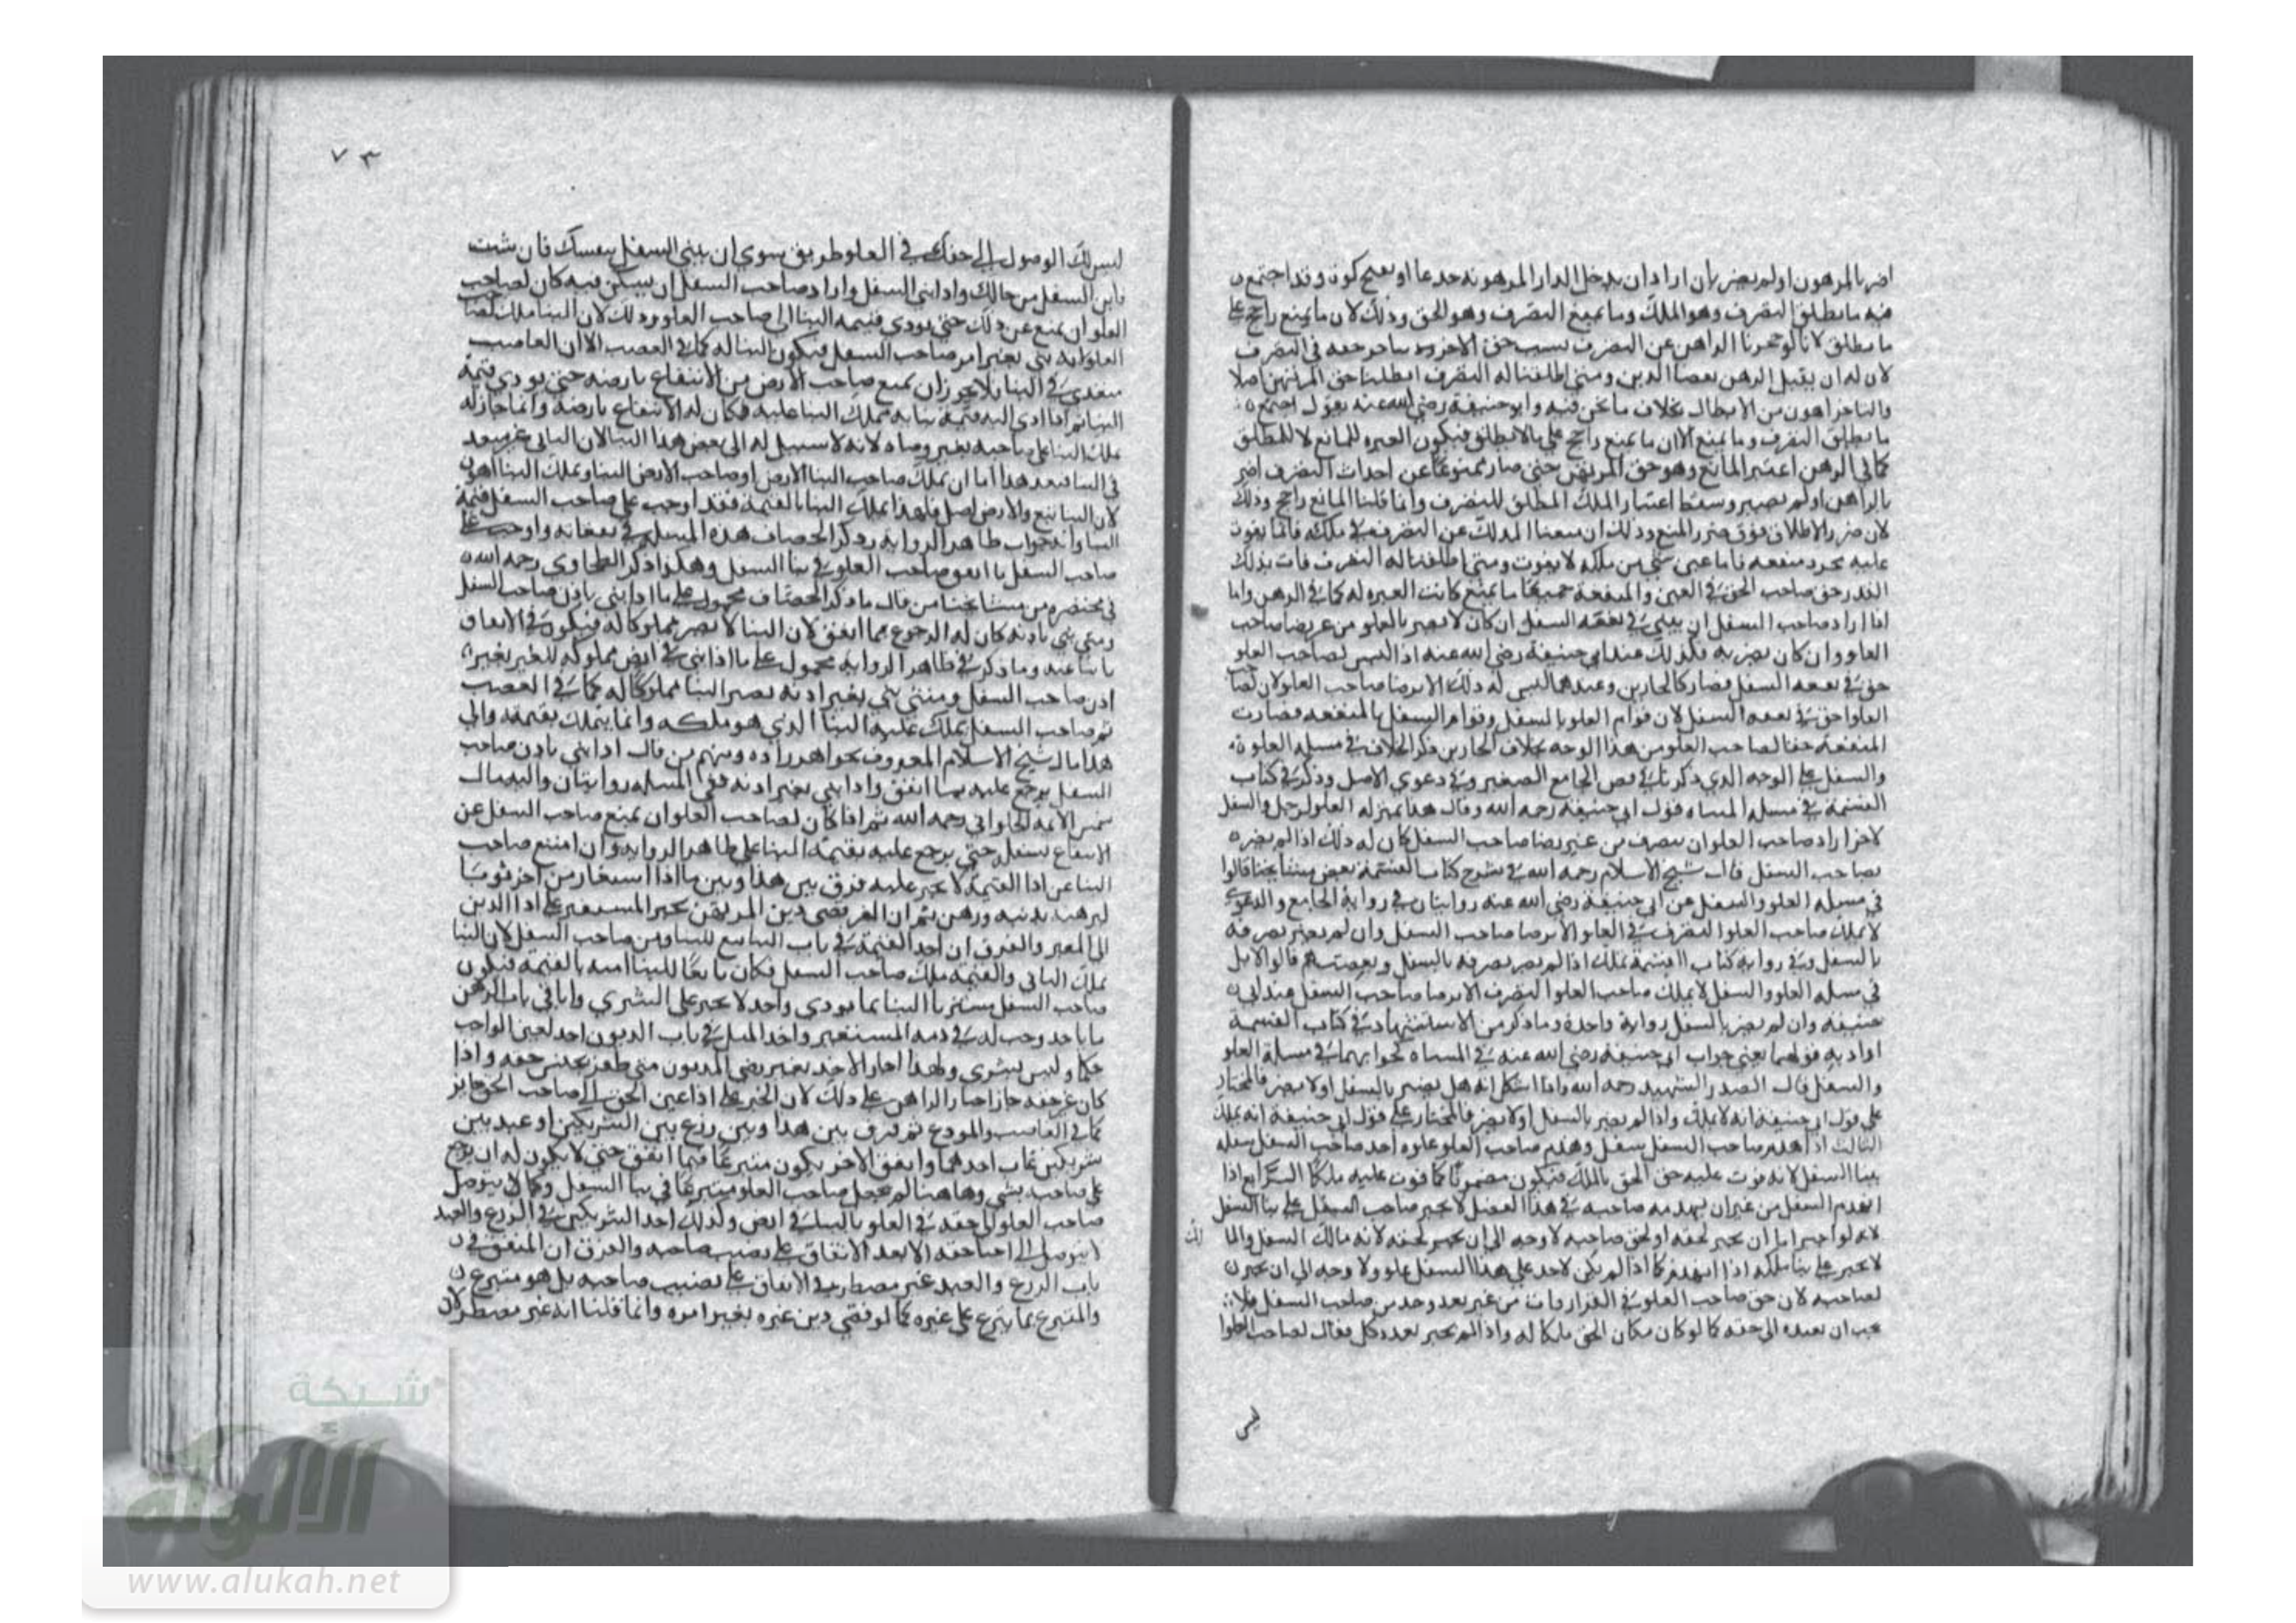 اضر بالمرهون اولم يضر بان اراد ان يدخل الدار المرهونه جدعا او يفتح كوة وقد اجتمع
فيه ما يطلق التصرف وهو الملك وما يمنع التصرف وهو الحق وذلك لان ما يمنع راجح على
ما يطلق لانا لو حجرنا الراهن عن التصرف بسبب حق الاخر حقه في التصرف
لان له ان يقبل الرهن بقضا الدين ومتى اطلقنا له التصرف ابطلنا حق المرتهن اصلا
والتاخر اهون من الابطال بخلاف ما نحن فيه وابو حنيفة رضي الله عنه يقول اجتمع
ما يطلق التصرف وما يمنع الا ان ما يمنع راجح على ما يطلق فيكون العبره للمانع لا للمطلق
كما في الرهن اعتبر المانع وهو حق المرتهن حتى صار ممنوعا عن احداث التصرف اضر
بالراهن اولم يضر وسقط اعتبار الملك المطلق للتصرف وانما قلنا المانع راجح وذلك
لان ضرر الاطلاق فوق ضرر المنع وذلك ان منعنا المالك عن التصرف في ملكه فانما يفوت
عليه مجرد منفعه فاما عين شي من ملكه لا يفوت ومتى اطلقنا له التصرف فات بذلك
القدر حق صاحب الحق في العين والمنفعة جميعا ما يمنع كانت العبره له كما في الرهن واما
اذا اراد صاحب السفل ان يبني في السفل ان كان لا يضر بالعلو من غير رضا صاحب
العلو وان كان يضر به فكذلك عند ابي حنيفة رضي الله عنه اذ ليس لصاحب العلو
حق في السفل فصار كالجارين وعندهما ليس له ذلك الا برضا صاحب العلو لان لصاحب
العلو احق في السفل لان قوام العلو بالسفل وقوام السفل بالمنفعه فصارت
المنفعة حقا لصاحب العلو من هذا الوجه بخلاف الجارين ذكر الخلاف في مسله العلو
والسفل على الوجه الذي ذكرنا في نص الجامع الصغير وفي دعوى الاصل وذكر في كتاب
القسمة في مسله قول ابي حنيفة رحمه الله وقال هذا بمنزله العلو لرجل والسفل
لاخر اراد صاحب العلو ان يتصرف من غير رضا صاحب السفل كان له ذلك اذا لم يضر
بصاحب السفل قال شيخ الاسلام رحمه الله في شرح كتاب القسمة بعض مشايخنا قالوا
في مسله العلو والسفل عن ابي حنيفة رضي الله عنه روايتان في رواية الجامع والدعوى
لا يملك صاحب العلو التصرف في العلو الا برضا صاحب السفل وان لم يضر تصرفه
بالسفل وفي رواية كتاب القسمة يملك اذا لم يضر تصرفه بالسفل وبعضهم قالوا لا بل
في مسله العلو والسفل لا يملك صاحب العلو التصرف الا برضا صاحب السفل عند ابي
حنيفه وان لم يضر بالسفل رواية واحدة وما ذكر من الاستشهاد في كتاب القسمة
اراد به قولهما يعني جواب ابي حنيفة رضي الله عنه في كجوابهما في مسلة العلو
والسفل قال الصدر الشهيد رحمه الله واذا اشكل انه هل يضر بالسفل اولا يضر فالمختار
على قول ابي حنيفة انه لا يملك واذا لم يضر بالسفل اولا يضر فالمختار على قول ابي حنيفة انه يملك
الثالث اذا هدم صاحب السفل سفله وهدم صاحب العلو علوه اخذ صاحب السفل
ببنا السفل لانه فوت عليه حق الحق بالملك فيكون مضمونا كما فوت عليه ملكا الرابع اذا
انهدم السفل من غير ان يهدمه صاحبه في هذا الفصل لا يجبر صاحب السفل على بنا السفل
لانه لو اجبر اما ان يجبر لحقه او لحق صاحبه لا وجه الى ان يجبر لحقه لانه مالك السفل والمالك
لا يجبر على بنا ملكه اذا انهدم كما اذا لم يكن لاحد على هذا السفل علو ولا وجه الى ان يجبر
لصاحبه لان حق صاحب العلو في القرار فات من غير تعد وجد من صاحب السفل فلا
يجب ان يعيده الى حقه كما لو كان مكان الحق ملكا له واذا لم يجبر يقال لصاحب العلو
ليس
٧٣
ليس لك الوصول الى حقك في العلو طريق سوى ان يبني السفل بنفسك فان شئت
فابن السفل من مالك واذا بنى السفل واراد صاحب السفل ان يسكن فيه كان لصاحب
العلو ان يمنع عن ذلك حتى يودي قيمه البنا الى صاحب العلو وذلك لان البنا ملك لصاحب
العلو لانه بنى بغير امر صاحب السفل فيكون البنا له كما في الغصب الا ان الغاصب
متعدي في البنا فلا يجوز ان يمنع صاحب الارض من الانتفاع بارضه حتى يودي قيمة
البنا ثم اذا ادى اليه قيمة بنايه تملك البنا عليه فكان له الانتفاع بارضه وانما جاز له
تملك البنا على صاحبه بغير رضاه لانه لا سبيل له الى نقض هذا البنا لان الباني غير متعد
في البنا فبعد هذا اما ان يملك صاحب البنا الارض او صاحب الارض البنا وتملك البنا اهون
لان البنا تبع والارض اصل فلهذا تملك البنا بالقيمه فقد اوجب على صاحب السفل قيمة
البنا وانه جواب ظاهر الرواية وذكر الخصاف هذه المسلة في نفقاته واوجب على
صاحب السفل ما انفق صاحب العلو في بنا السفل وهكذا ذكر الطحاوي رحمه الله
في مختصره من مشايخنا من قال ما ذكر الخصاف محمول على ما اذا بنى باذن صاحب السفل
ومتى بنى باذنه كان له الرجوع بما انفق لان البنا لا يصير مملوكا له فيكون في الانفاق
وما ذكر في ظاهر الرواية محمول على ما اذا بنى في ارض مملوكه للغير بغير
اذن صاحب السفل ومتى بنى بغير اذنه يصير البنا مملوكا له كما في الغصب
ثم صاحب السفل يملك عليه البنا الذي هو ملكه وانما يتملك بقيمته والى
هذا مال شيخ الاسلام المعروف بخواهر زاده ومنهم من قال اذا بنى باذن صاحب
السفل يرجع عليه بما انفق واذا بنى بغير اذنه ففي المسله روايتان واليه مال
شمس الايمه الحلواني رحمه الله ثم اذا كان لصاحب العلو ان يمنع صاحب السفل عن
الانتفاع بسفله حتى يرجع عليه بقيمة البنا على ظاهر الرواية وان امتنع صاحب
البنا عن ادا القيمة لا يجبر عليه فرق بين هذا وبين ما اذا استعار من اخر ثوبا
ليرهنه بدينه ورهن ثم ان المعير قضى دين المرتهن يجبر المستعير على ادا الدين
الى المعير والفرق ان اخذ القيمة في باب البنا بيع للبنا من صاحب السفل لان البنا
تملك الباني والقيمه ملك صاحب السفل فكان بايعا للبنا منه بالقيمة فيكون
صاحب السفل مشتريا البنا بما يودي واحد لا يجبر على الشري واما في باب الرهن
ما ياخذ وجب له في ذمه المستعير واخذ المثل في باب الديون اخذ لعين الواجب
حكما وليس بشرى ولهذا اجاز الاخذ بغير رضى المديون متى ظفر بجنس حقه واذا
كان عين حقه جاز اجبار الراهن على ذلك لان الجبر على ادا عين الحق الى صاحب الحق جايز
كما في الغاصب والمودع ثم فرق بين هذا وبين زرع بين الشريكين او عبد بين
شريكين غاب احدهما وانفق الاخر يكون متبرعا فيما انفق حتى لا يكون له ان يرجع
على صاحبه بشي وهاهنا لم يجعل صاحب العلو متبرعا في بنا السفل وكما لا يتوصل
صاحب العلو الى حقه في العلو بالبنا في ارض وكذلك احد الشريكين في الزرع والعبد
لا يتوصل الى احيا حقه الا بعد الانفاق على نصيب صاحبه والفرق ان المنفق في
باب الزرع والعبد غير مضطر في الانفاق على نصيب صاحبه بل هو متبرع
والمتبرع بما يتبرع على غيره كما لو قضى دين غيره بغير امره وانما قلنا انه غير مضطر لان
شبكة
الألوكة
www.alukah.net